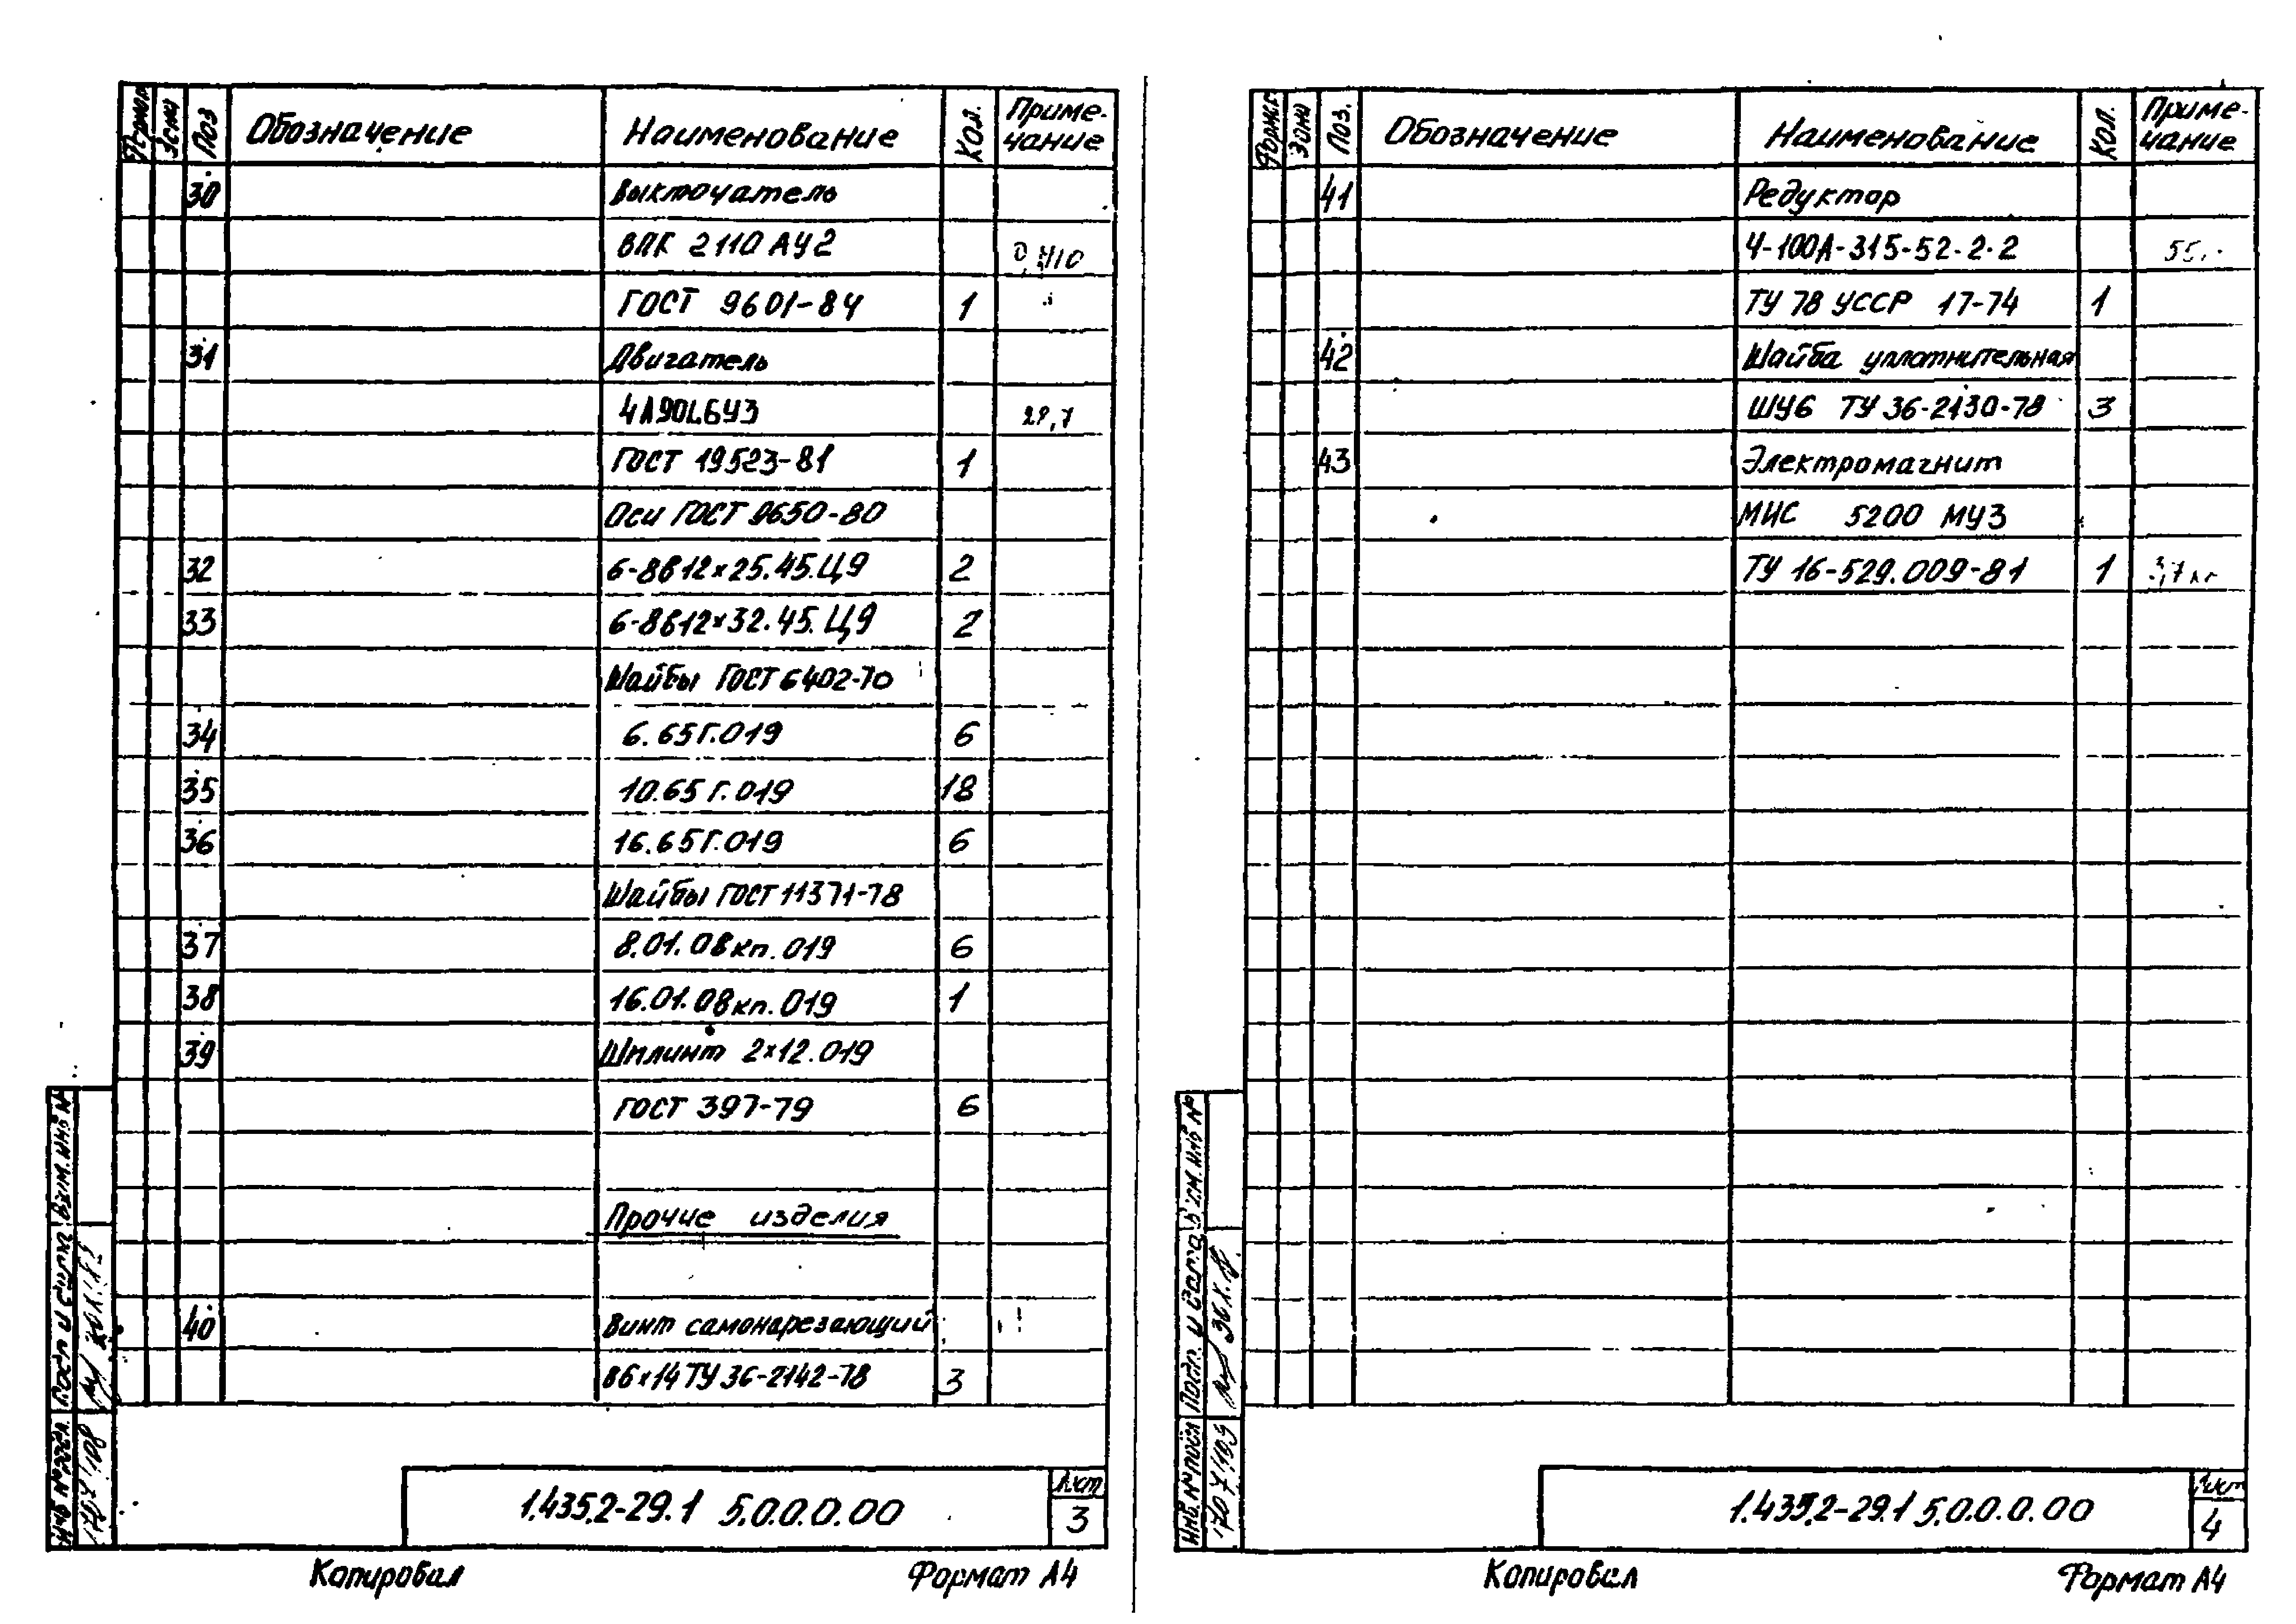 Формат Зона Поз Обозначение Наименование Кол. Приме-
чание
30 Выключатель
ВПК 2110 АУ2
ГОСТ 9601-84 1
31 Двигатель
4А90L6У3 28,7
ГОСТ 19523-81 1
Оси ГОСТ 9650-80
32 6-8в12×25.45.Ц9 2
33 6-8в12×32.45.Ц9 2
Шайбы ГОСТ 6402-70
34 6.65Г.019 6
35 10.65Г.019 18
36 16.65Г.019 6
Шайбы ГОСТ 11371-78
37 8.01.08кп.019 6
38 16.01.08кп.019 1
39 Шплинт 2×12.019
ГОСТ 397-79 6
Прочие изделия
40 Винт самонарезающий
В6×14 ТУ 36-2142-78 3
Взам. инв №
Подп и дата
Инв № подл.
1.435.2-29.1 5.0.0.0.00
Лист
3
Копировал Формат А4
Формат Зона Поз. Обозначение Наименование Кол. Приме-
чание
41 Редуктор
Ч-100А-315-52-2-2 55,
ТУ 78 УССР 17-74 1
42 Шайба уплотнительная
ШУ6 ТУ 36-2130-78 3
43 Электромагнит
МИС 5200 МУ3
ТУ 16-529.009-81 1 3,7 кг
Взам. инв №
Подп. и дата
Инв. № подл
1.435.2-29.1 5.0.0.0.00
Лист
4
Копировал Формат А4